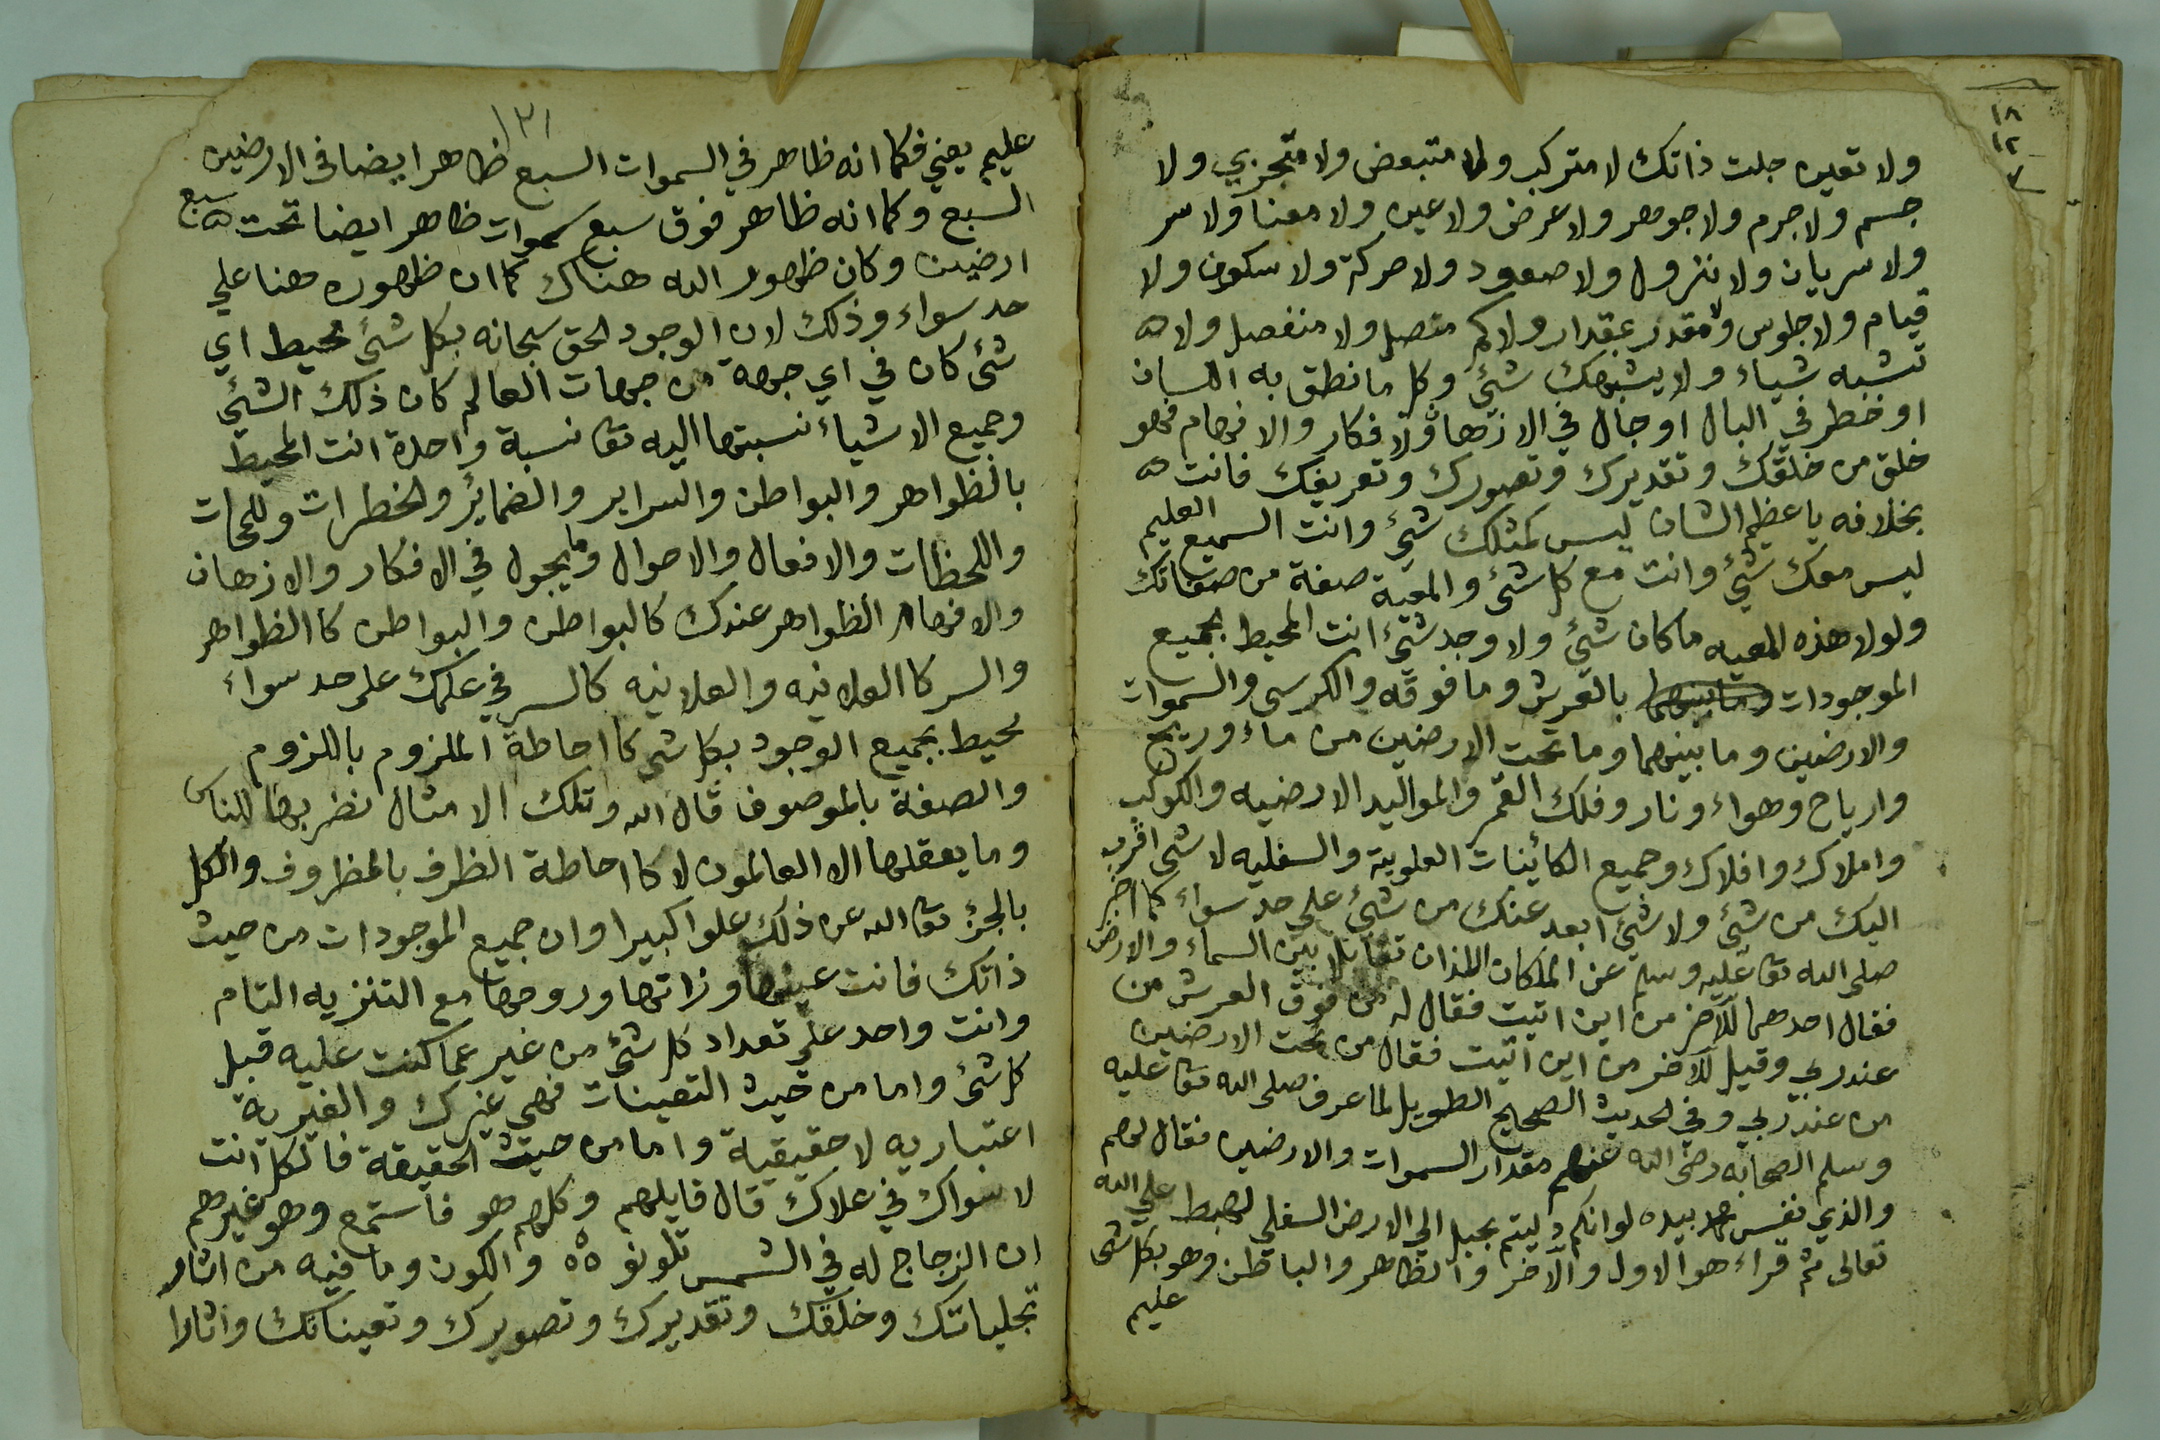 ١٨
١٢
٧
ولا تعيره جلت ذاتك لا متركب ولا متبعض ولا متجزي ولا
جسم ولا جرم ولا جوهر ولا عرض ولا عين ولا معنا ولا سر
ولا سريان ولا نزول ولا صعود ولا حركة ولا سكون ولا
قيام ولا جلوس ولا مقدر بمقدار ولا كم متصل ولا منفصل ولا
تشبه شياء ولا يشبهك شئ وكل ما نطق به اللسان
او خطر في البال او جال في الاذهان ولافكار والافهام فهو
خلق من خلقك وتقديرك وتصورك وتعريفك فانت
بخلافه يا عظيم الشان ليس كمثلك شئ وانت السميع العليم
ليس معك شئ وانت مع كل شئ والمعية صفة من صفاتك
ولولا هذه المعيه ما كان شئ ولا وجد شئ انت المحيط بجميع
الموجودات بالعرش وما فوقه والكرسي والسموات
والارضين وما بينهما وما تحت الارضين من ماء وريح
وارياح وهواء ونار وفلك القمر والمواليد الارضيه والكوكب
واملاك وافلاك وجميع الكائينات العلوية والسفليه لا شئ اقرب
اليك من شئ ولا شئ ابعد عنك من شئ على حد سواء كما اخبر
صلى الله تعا عليه وسلم عن الملكان اللذان تقابلا بين السماء والارض
فقال احدهما للآخر من اين اتيت فقال له من فوق العرش من
عند ربي وقيل للآخر من اين اتيت فقال من تحت الارضين
من عند ربي وفي الحديث الصحيح الطويل لما عرف صلى الله تعا عليه
وسلم الصحابه رضى الله عنهم مقدار السموات والارضين فقال لهم
والذي نفس محمد بيده لو انكم دليتم بحبل الي الارض السفلي لهبط علي الله
تعالى ثم قراء هو الاول والآخر والظاهر والباطن وهو بكل شئ
عليم
١٣١
عليم يعني فكما انه ظاهر في السموات السبع ظاهر ايضا في الارضين
السبع وكما انه ظاهر فوق سبع سموات ظاهر ايضا تحت سبع
ارضين وكان ظهور الله هناك كما ان ظهوره هنا علي
حد سواء وذلك لان الوجود الحق سبحانه بكل شئ محيط اي
شئ كان في اي جهة من جهات العالم كان ذلك الشئ
وجميع الاشياء نسبتها اليه تعا نسبة واحدة انت المحيط
بالظواهر والبواطن والسراير والضماير والخطرات وللمحات
واللحظات والافعال والاحوال وما يجول في الافكار والاذهان
والافهام الظواهر عندك كالبواطن والبواطن كا الظواهر
والسر كا العلانيه والعلانيه كالسر في علمك على حد سواء
محيط بجميع الوجود بكل شئ كا احاطة الملزوم باللزوم
والصفة بالموصوف قال الله وتلك الامثال نضربها للناس
وما يعقلها الا العالمون لا كا احاطة الظرف بالمظروف والكل
بالجزئ تعا الله عن ذلك علوا كبيرا وان جميع الموجودات من حيث
ذاتك فانت عينها وذاتها وروحها مع التنزيه التام
وانت واحد على تعداد كل شئ من غير عما كنت عليه قبل
كل شئ واما من حيث التعينات فهي غيرك والغيرية
اعتباريه لا حقيقية واما من حيث الحقيقة فا لكل انت
لا سواك في علاك قال قايلهم وكلهم هو فاستمع وهو غيرهم
ان الزجاج له في الشمس تلونو ٥٥ والكون وما فيه من اثار
تجلياتك وخلقك وتقديرك وتصويرك وتعيناتك واثارا